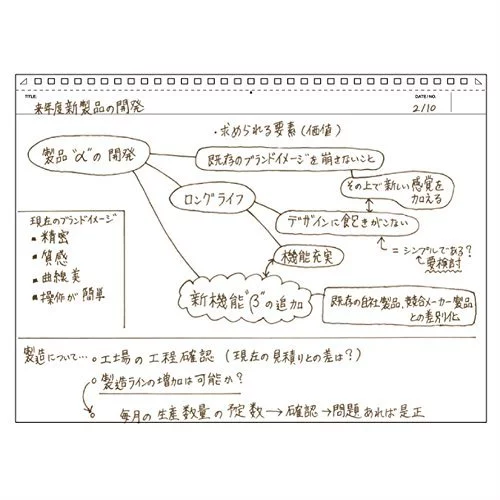 TITLE:
来年度新製品の開発
DATE/NO.
2/10
・求められる要素(価値)
製品"α"の開発
既存のブランドイメージを崩さないこと
その上で新しい感覚を
加える
ロングライフ
デザインに飽きがこない
=シンプルである?
要検討
機能充実
新機能"β"の追加
既存の自社製品、競合メーカー製品
との差別化
現在のブランドイメージ
■精密
■質感
■曲線美
■操作が簡単
製造について…○工場の工程確認(現在の見積りとの差は?)
○製造ラインの増加は可能か?
○毎月の生産数量の予定数→確認→問題あれば是正